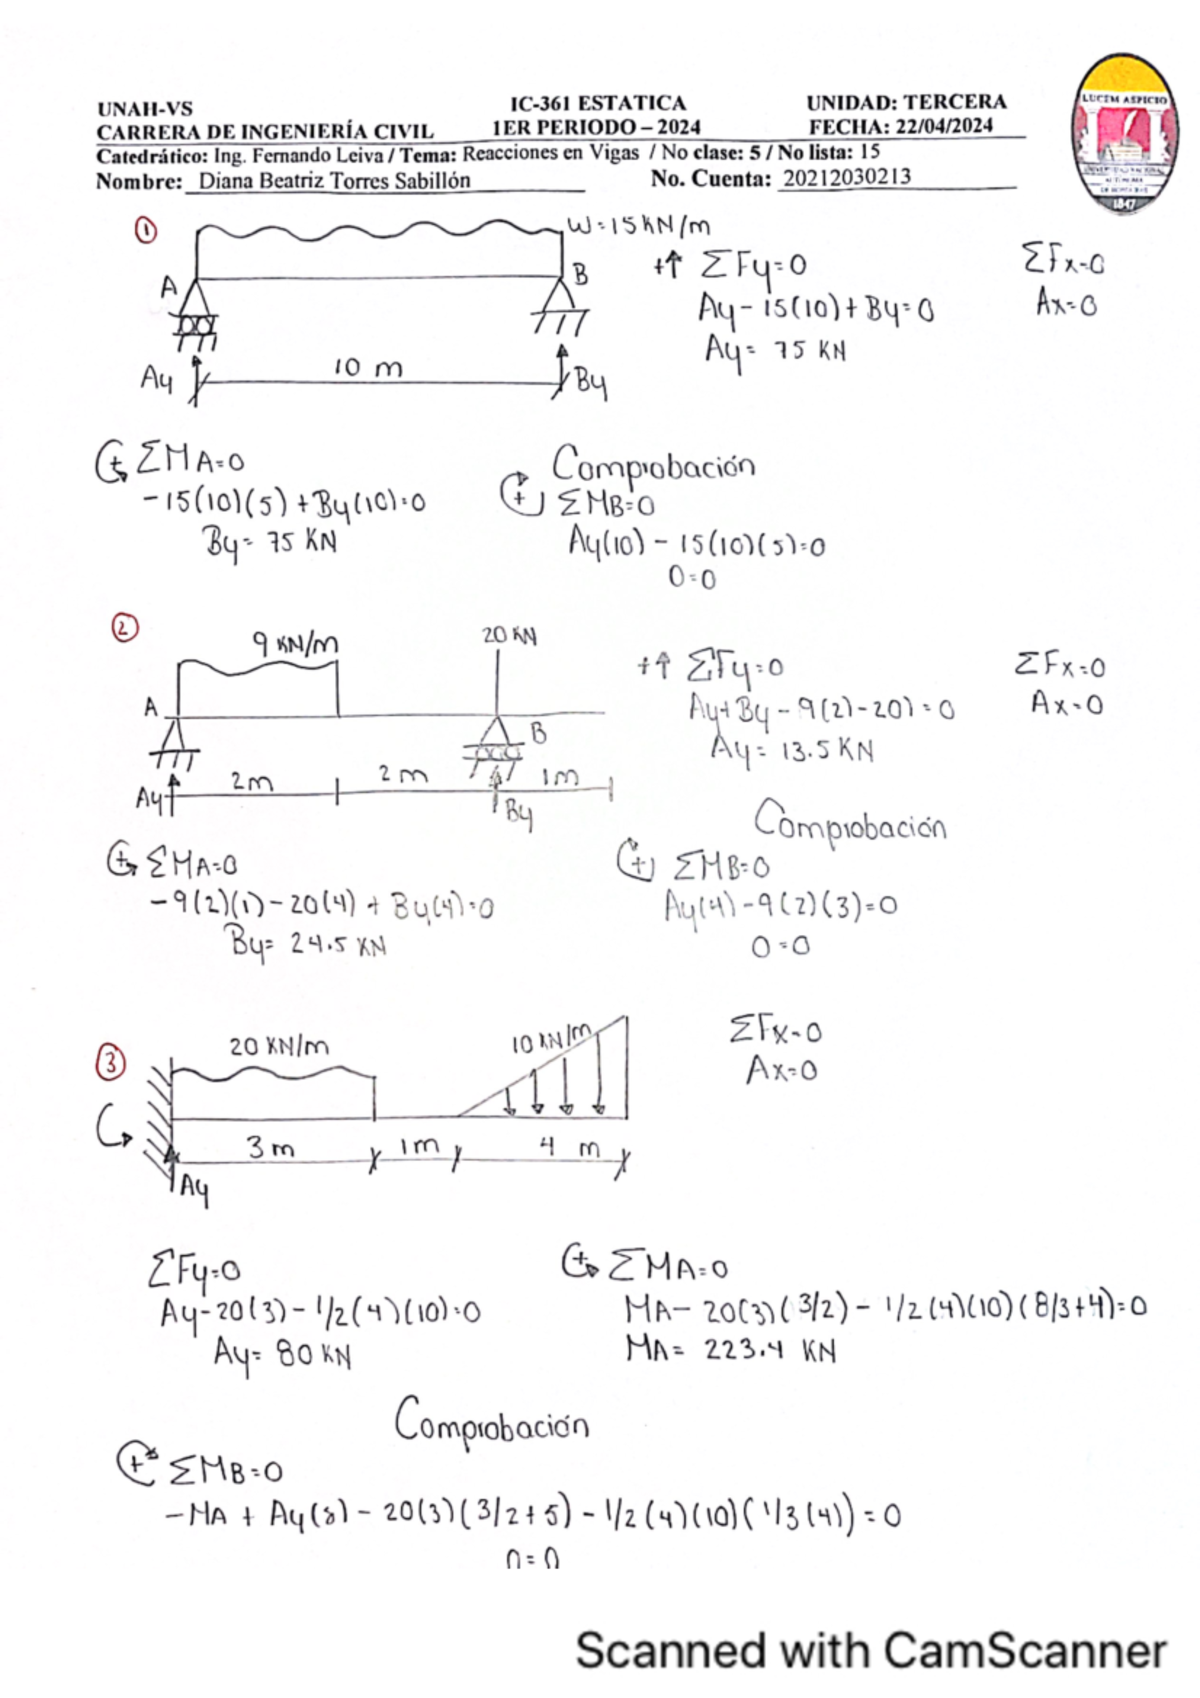 UNAH-VS IC-361 ESTATICA UNIDAD: TERCERA
CARRERA DE INGENIERÍA CIVIL 1ER PERIODO – 2024 FECHA: 22/04/2024
Catedrático: Ing. Fernando Leiva / Tema: Reacciones en Vigas / No clase: 5 / No lista: 15
Nombre: Diana Beatriz Torres Sabillón No. Cuenta: 20212030213
LUCEM ASPICIO
1847
① W=15KN/m
A B
10 m
Ay By
+↑ ΣFy=0
Ay-15(10)+By=0
Ay= 75 KN
ΣFx=0
Ax=0
+ ΣMA=0
-15(10)(5)+By(10)=0
By= 75 KN
Comprobación
+ ΣMB=0
Ay(10) - 15(10)(5)=0
0=0
② 9 KN/m 20 KN
A B
2m 2m 1m
Ay By
+↑ ΣFy=0
Ay+By-9(2)-20)=0
Ay= 13.5KN
ΣFx=0
Ax=0
+ ΣMA=0
-9(2)(1)-20(4)+By(4)=0
By= 24.5 KN
Comprobación
+ ΣMB=0
Ay(4)-9(2)(3)=0
0=0
③ 20 KN/m 10 KN/m
3m 1m 4 m
Ay
ΣFx=0
Ax=0
ΣFy=0
Ay-20(3)-1/2(4)(10)=0
Ay= 80KN
+ ΣMA=0
MA- 20(3)(3/2)-1/2(4)(10)(8/3+4)=0
MA= 223.4 KN
Comprobación
+ ΣMB=0
-MA + Ay(8)- 20(3)(3/2+5)-1/2(4)(10)(1/3(4))=0
0=0
Scanned with CamScanner